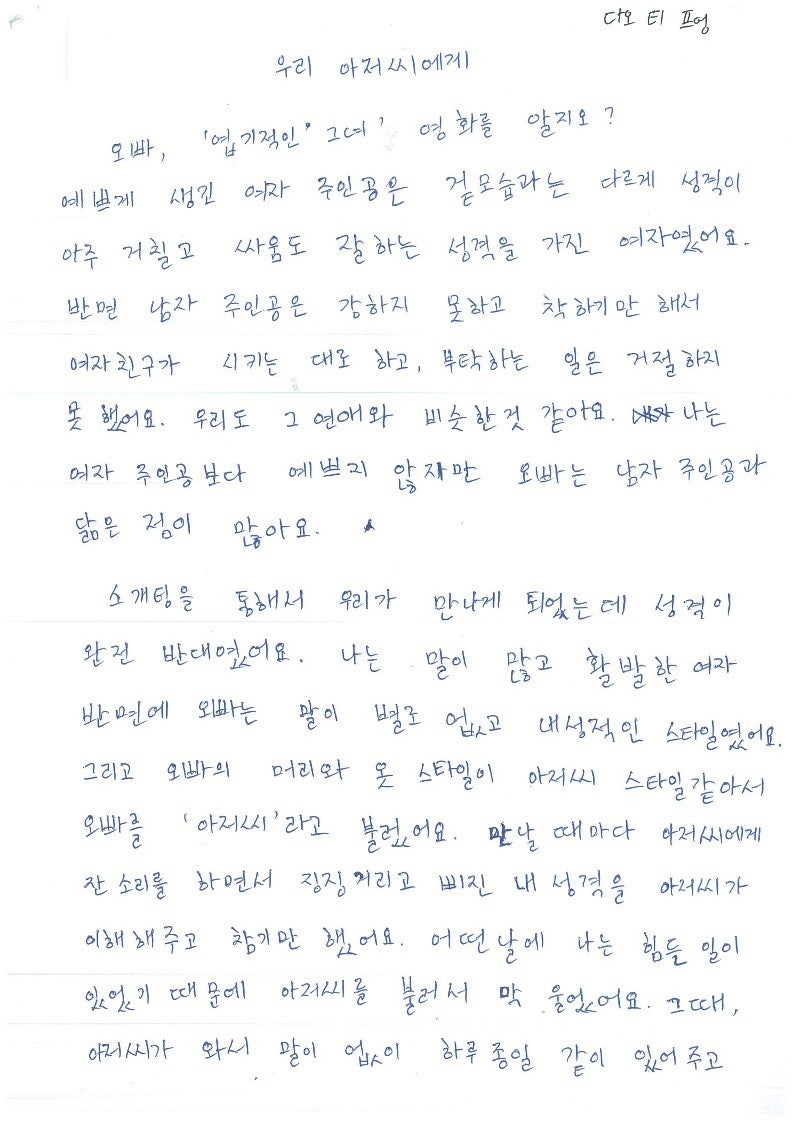 다오 티 프엉
우리 아저씨에게
오빠, '엽기적인 그녀' 영화를 알지요?
예쁘게 생긴 여자 주인공은 겉모습과는 다르게 성격이
아주 거칠고 싸움도 잘하는 성격을 가진 여자였어요.
반면 남자 주인공은 강하지 못하고 착하기만 해서
여자친구가 시키는 대로 하고, 부탁하는 일은 거절하지
못 했어요. 우리도 그 연애와 비슷한것 같아요. 나는
여자 주인공보다 예쁘지 않지만 오빠는 남자 주인공과
닮은 점이 많아요.
소개팅을 통해서 우리가 만나게 되었는데 성격이
완전 반대였어요. 나는 말이 많고 활발한 여자
반면에 오빠는 말이 별로 없고 내성적인 스타일였어요.
그리고 오빠의 머리와 옷 스타일이 아저씨 스타일같아서
오빠를 '아저씨'라고 불렀어요. 만날 때마다 아저씨에게
잔소리를 하면서 징징거리고 삐진 내 성격을 아저씨가
이해해주고 참기만 했어요. 어떤날에 나는 힘든 일이
있었기 때문에 아저씨를 불러서 막 울었어요. 그때,
아저씨가 와서 말이 없이 하루종일 같이 있어주고